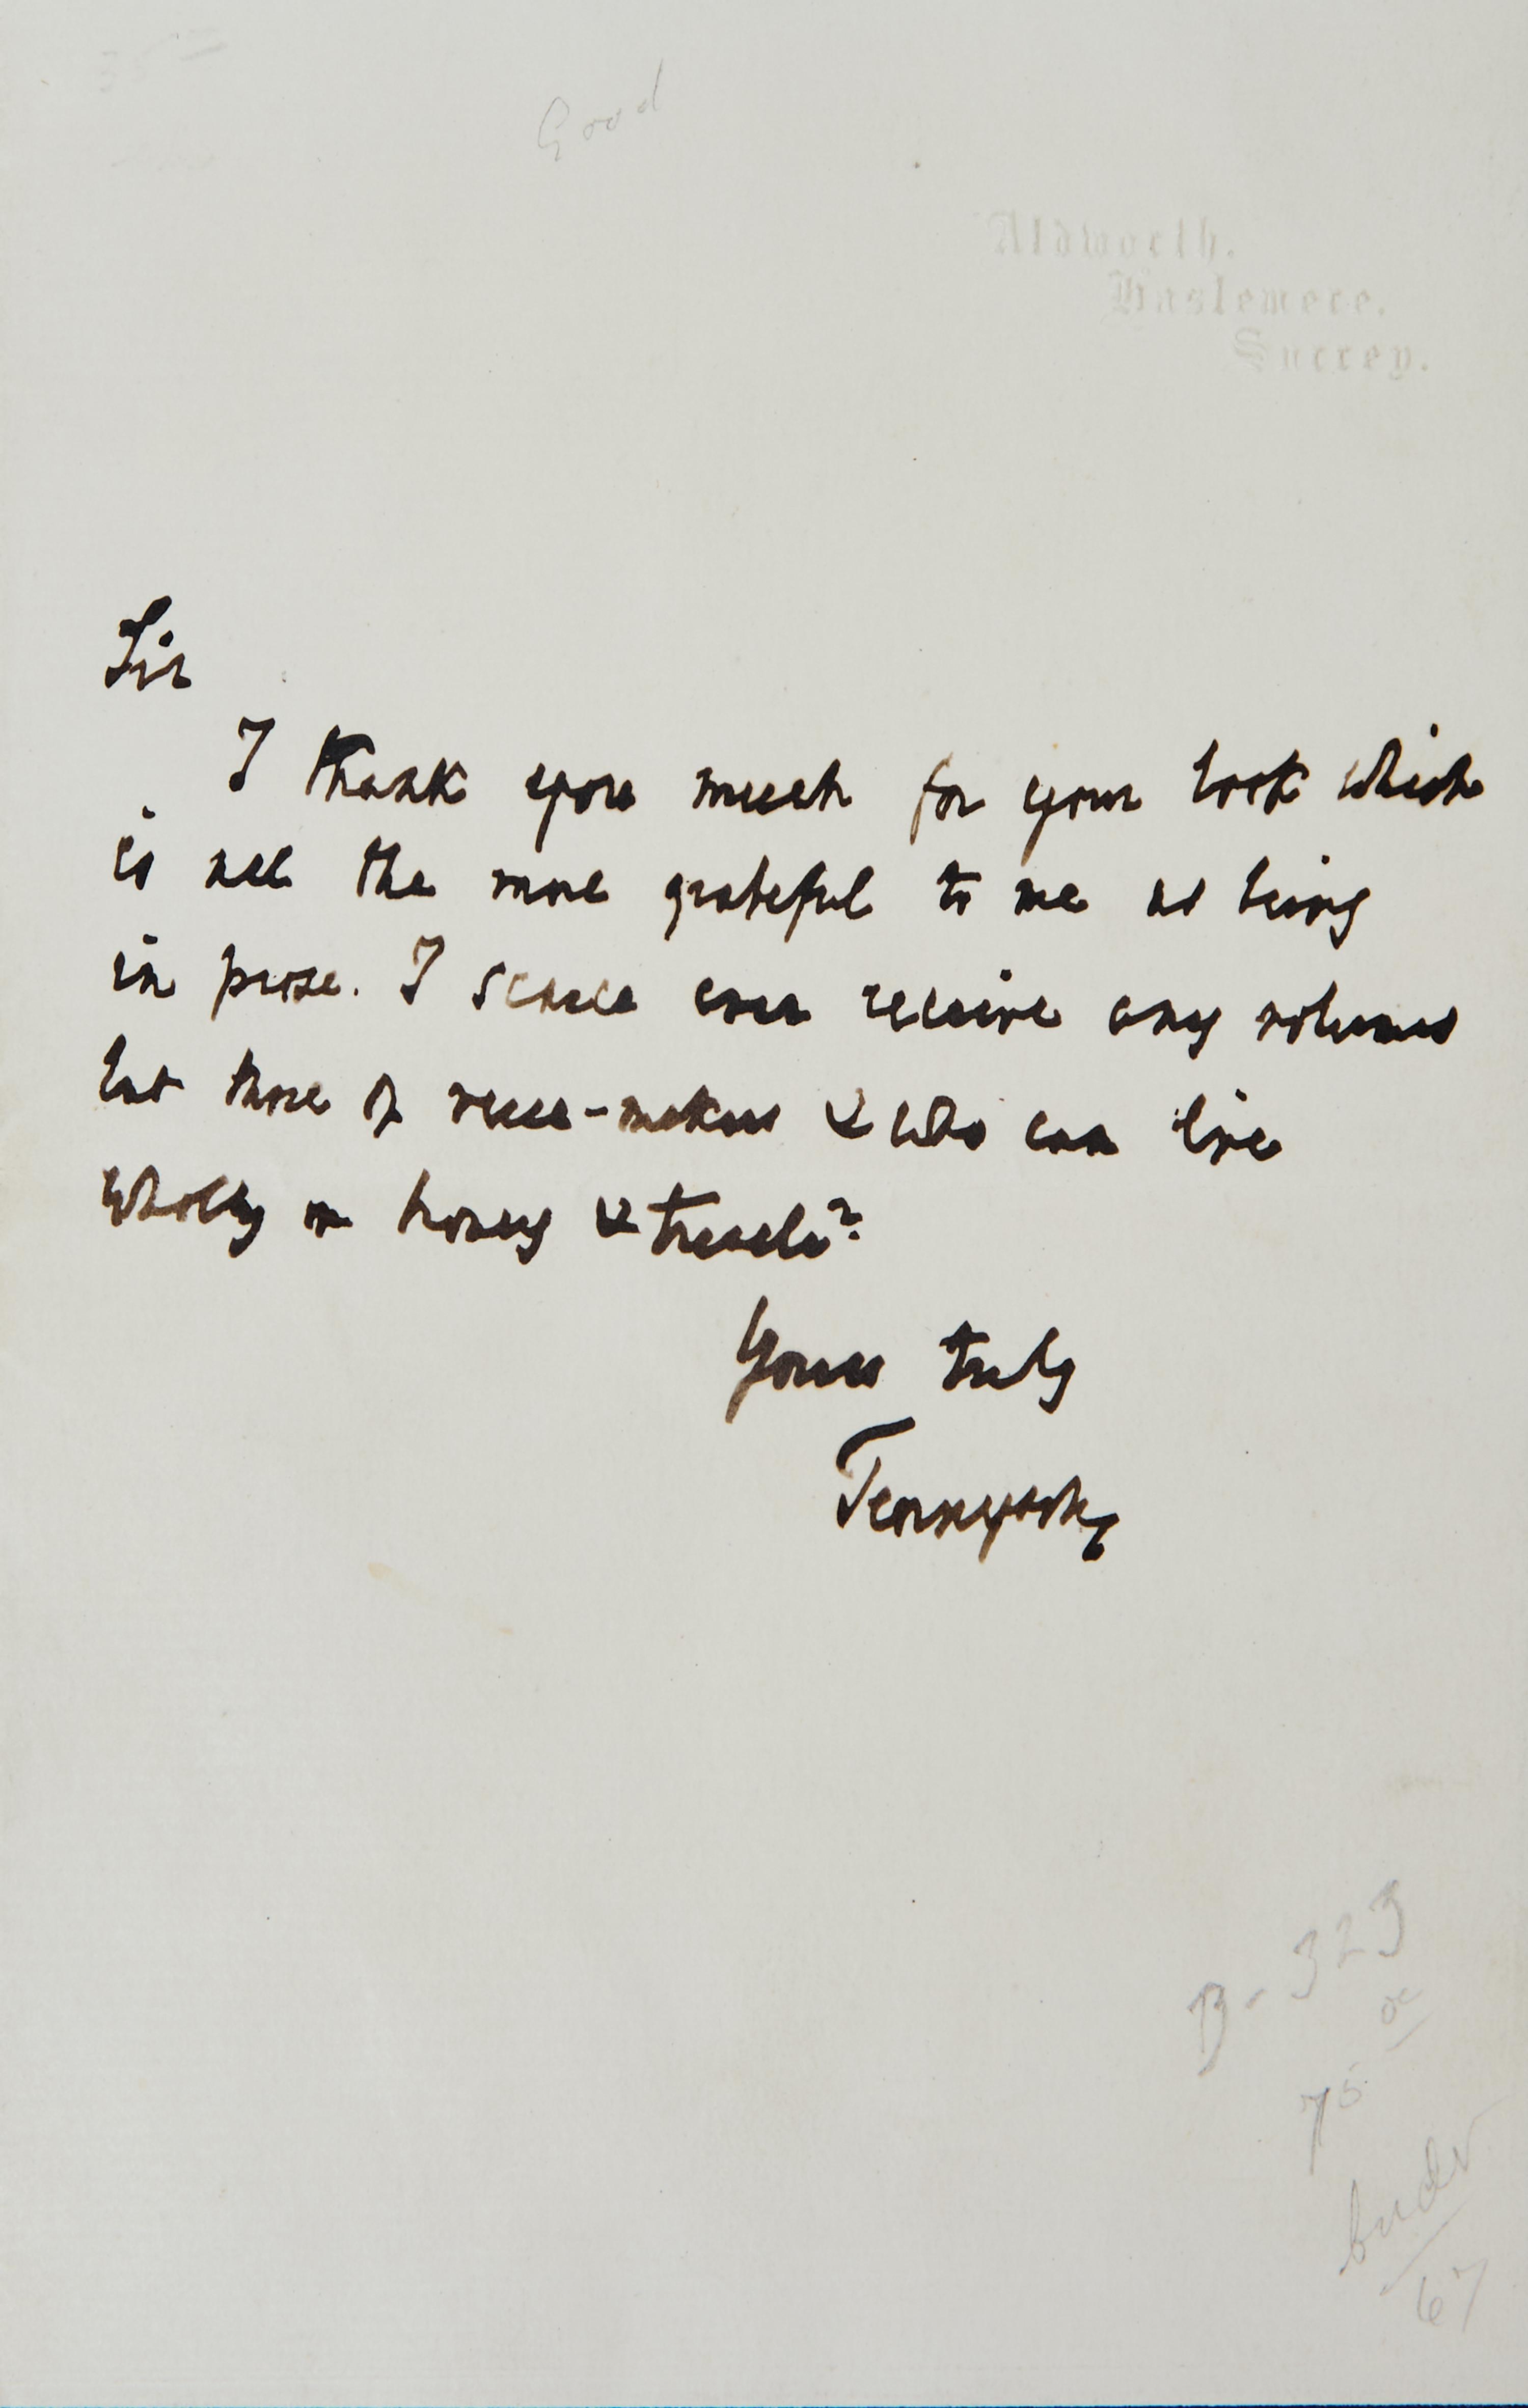 Good
Aldworth.
Haslemere.
Surrey.
Sir
I thank you much for your book which
is all the more grateful to me as being
in prose. I scarce ever receive any volumes
but those of verse-makers & who can live
wholly on honey & treacle?
Yours truly
Tennyson
B-323
75
67